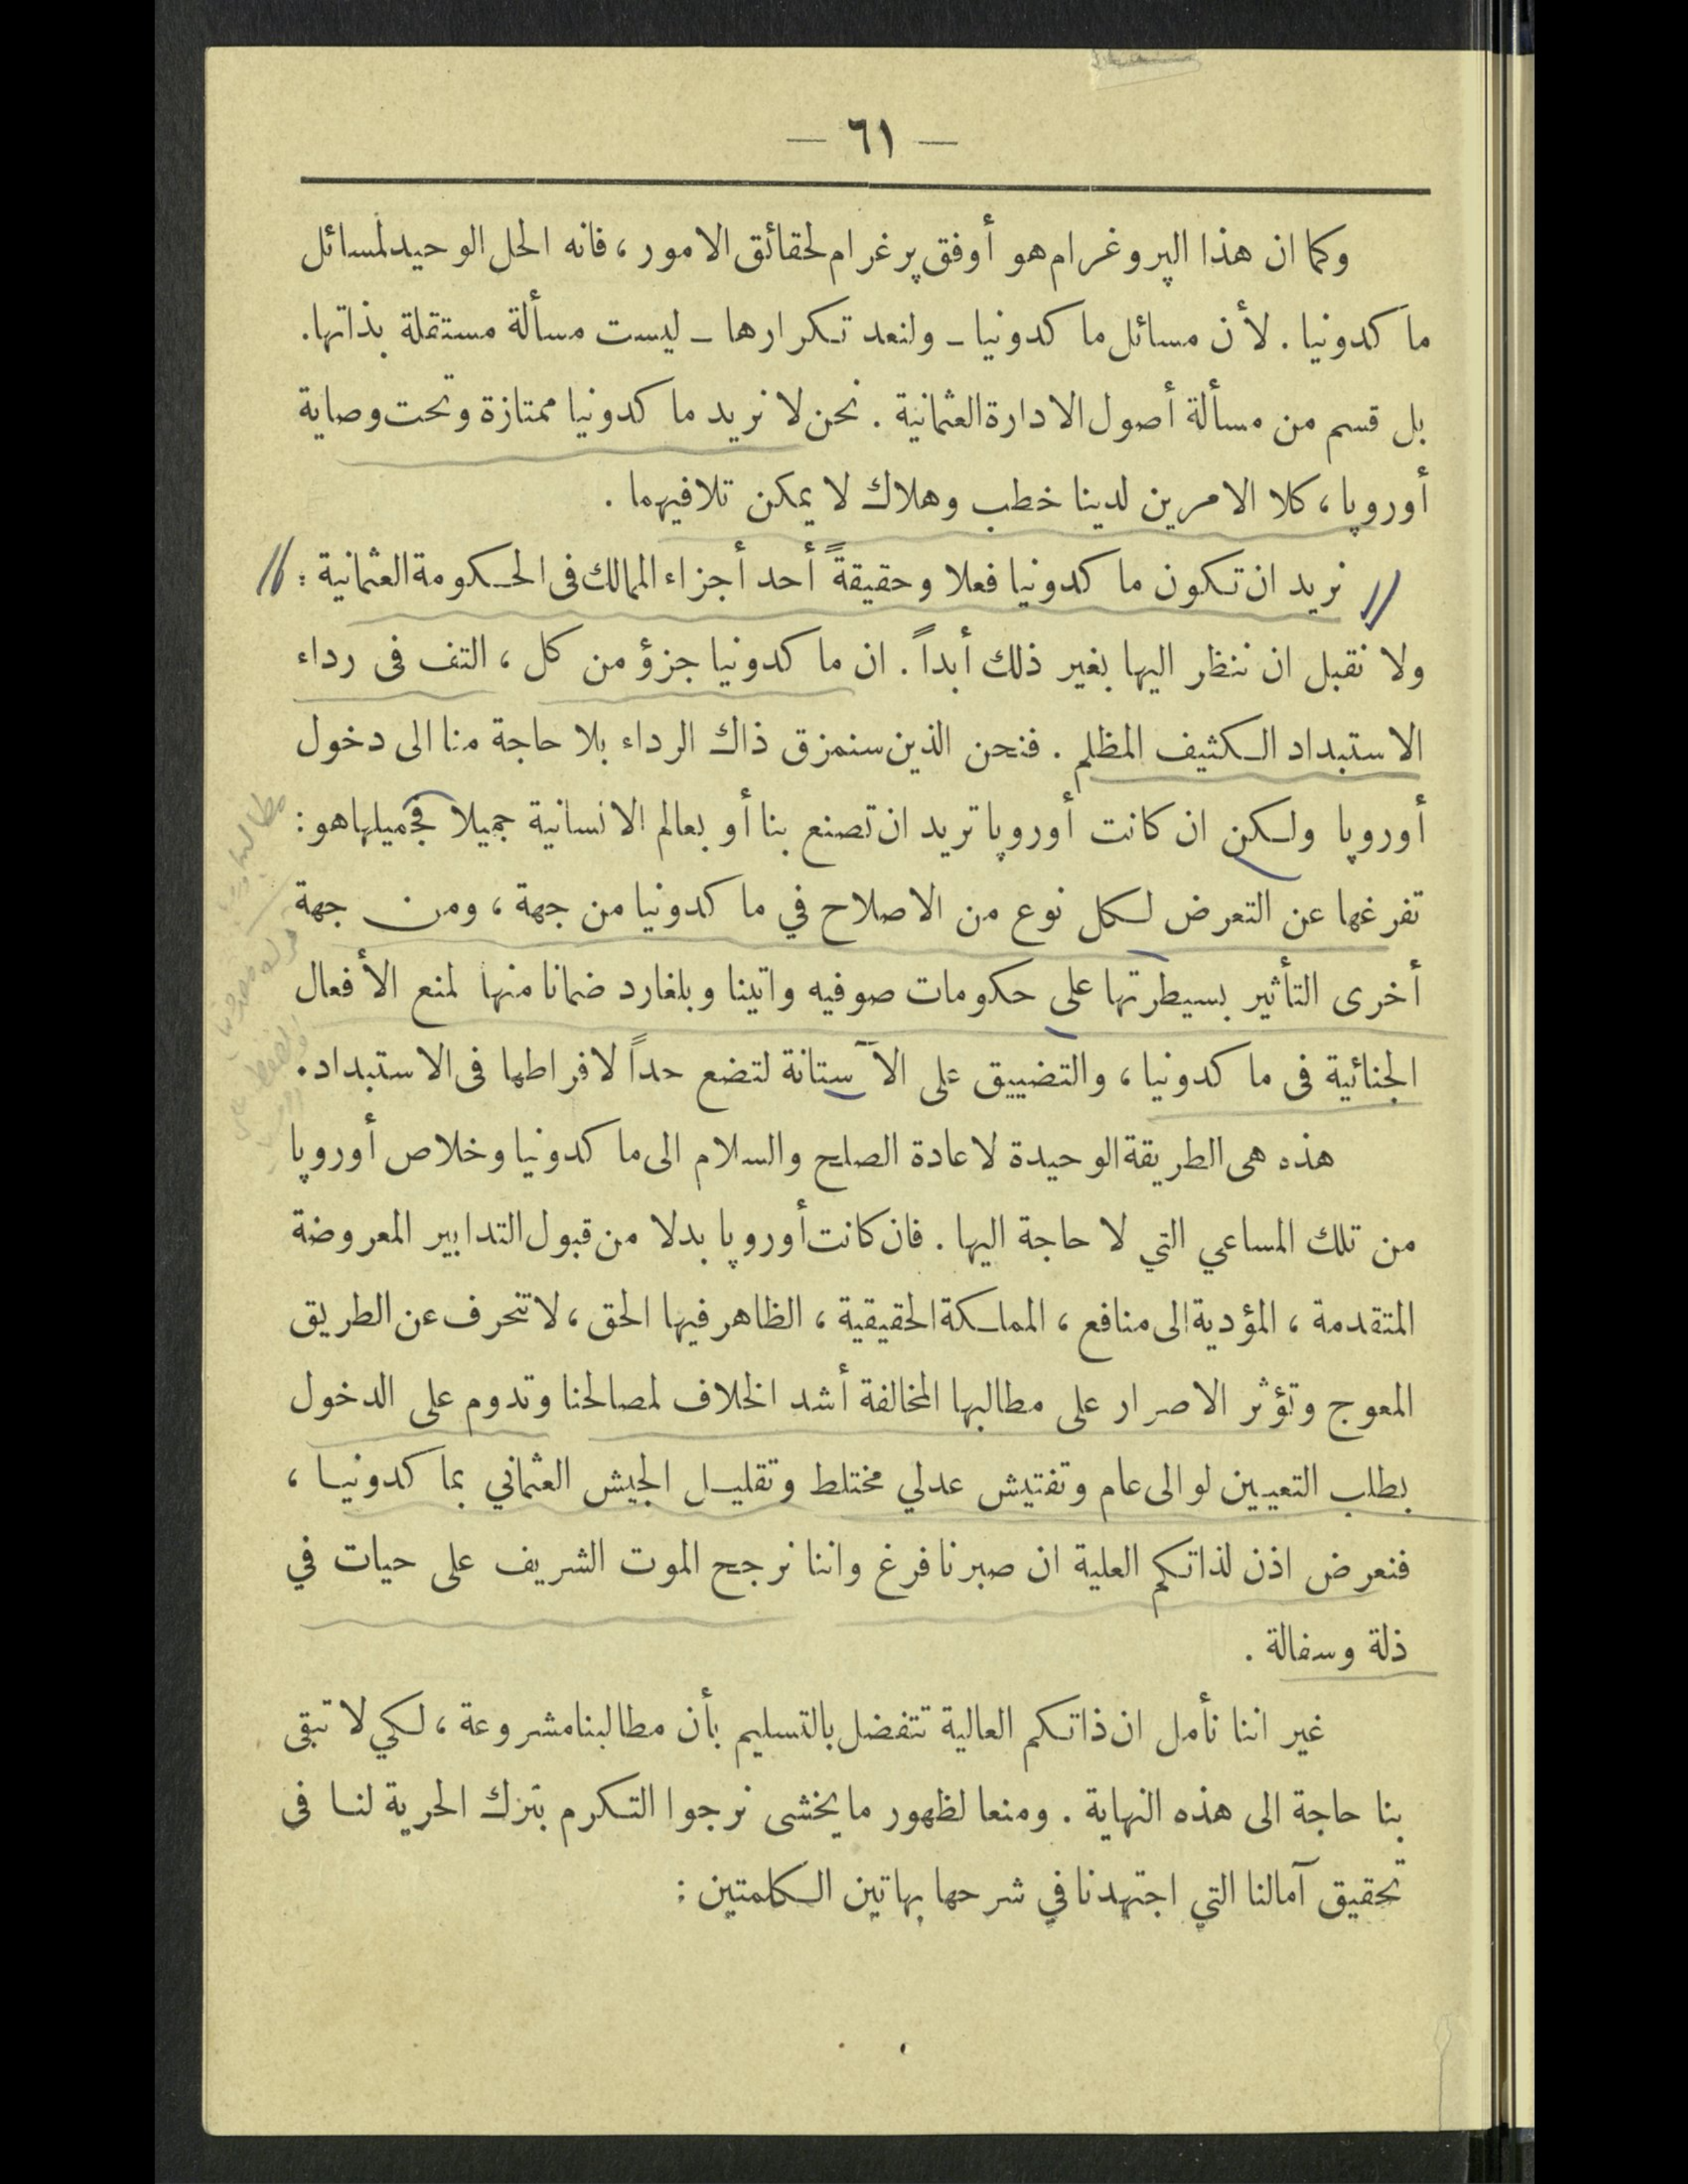 — ٦١ —
وكما ان هذا الپروغرام هو أوفق پرغرام لحقائق الامور ، فانه الحل الوحيد لمسائل
ماكدونيا . لأن مسائل ماكدونيا ـ ولنعد تكرارها ـ ليست مسألة مستقلة بذاتها .
بل قسم من مسألة أصول الادارة العثمانية . نحن لا نريد ماكدونيا ممتازة وتحت وصاية
أوروپا ، كلا الامرين لدينا خطب وهلاك لا يمكن تلافيهما .
نريد ان تكون ماكدونيا فعلا وحقيقةً أحد أجزاء الممالك فى الحكومة العثمانية :
ولا نقبل ان ننظر اليها بغير ذلك أبداً . ان ماكدونيا جزؤ من كل ، التف فى رداء
الاستبداد الكثيف المظلم . فنحن الذين سنمزق ذاك الرداء بلا حاجة منا الى دخول
أوروپا ولكن ان كانت أوروپا تريد ان تصنع بنا أو بعالم الانسانية جميلا فجميلها هو :
تفرغها عن التعرض لكل نوع من الاصلاح في ماكدونيا من جهة ، ومن جهة
أخرى التأثير بسيطرتها على حكومات صوفيه واتينا وبلغارد ضمانا منها لمنع الأفعال
الجنائية فى ماكدونيا ، والتضييق على الآستانة لتضع حداً لافراطها فى الاستبداد .
هذه هى الطريقة الوحيدة لاعادة الصلح والسلام الى ماكدونيا وخلاص أوروپا
من تلك المساعي التي لا حاجة اليها . فان كانت أوروپا بدلا من قبول التدابير المعروضة
المتقدمة ، المؤدية الى منافع ، المملكة الحقيقية ، الظاهر فيها الحق ، لا تنحرف عن الطريق
المعوج وتؤثر الاصرار على مطالبها المخالفة أشد الخلاف لمصالحنا وتدوم على الدخول
بطلب التعيين لوالى عام وتفتيش عدلي مختلط وتقليل الجيش العثماني بماكدونيا ،
فنعرض اذن لذاتكم العلية ان صبرنا فرغ واننا نرجح الموت الشريف على حيات في
ذلة وسفالة .
غير اننا نأمل ان ذاتكم العالية تتفضل بالتسليم بأن مطالبنا مشروعة ، لكي لا تبقى
بنا حاجة الى هذه النهاية . ومنعا لظهور ما يخشى نرجوا التكرم بترك الحرية لنا فى
تحقيق آمالنا التي اجتهدنا في شرحها بهاتين الكلمتين :